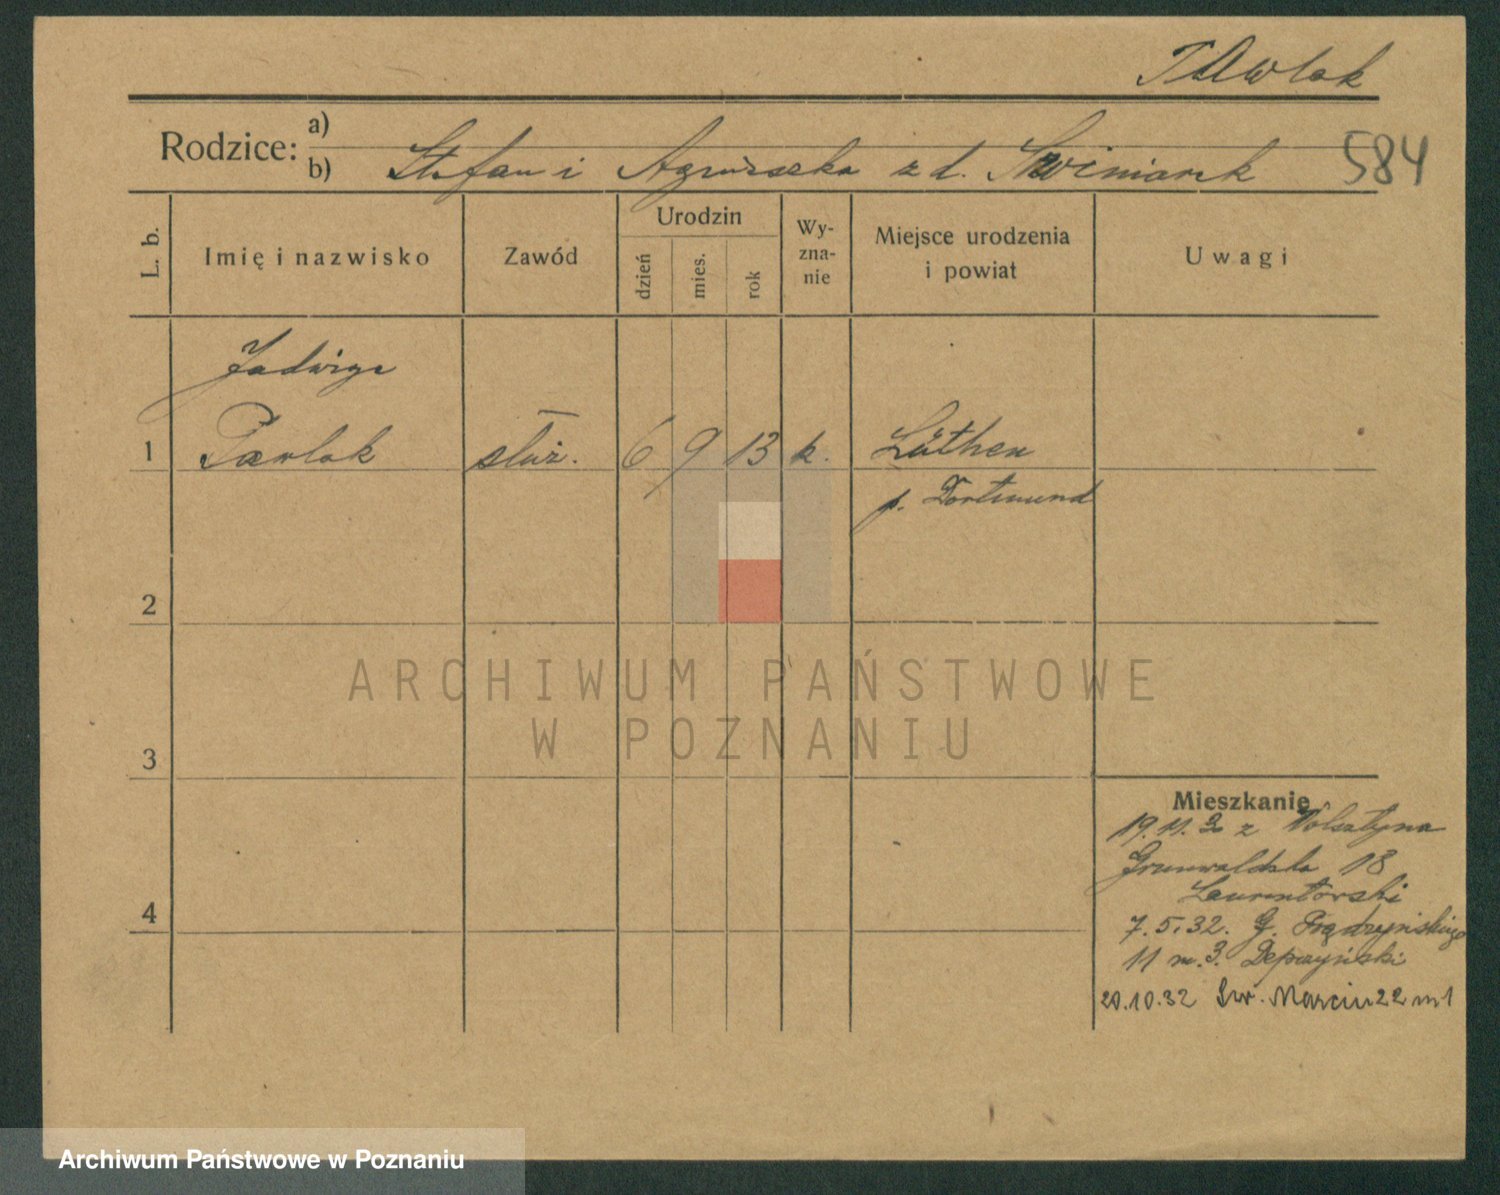 Pawlak
Rodzice: a)
b) Stefan i Agnieszka z d. Świniarek
584
L. b.
Imię i nazwisko
Zawód
Urodzin
dzień
mies.
rok
Wy-
zna-
nie
Miejsce urodzenia
i powiat
Uwagi
Jadwiga
1 Pawlak służ. 6 9 13 k. Lüthen
p. Dortmund
2
3
4
Mieszkanie
19.11.3 z Wolsztyna
Grunwaldzka 18
7.5.32. G.
11 m. 3. Depczyński
20.10.32 Św. Marcin 22 m 1
ARCHIWUM PAŃSTWOWE
W POZNANIU
Archiwum Państwowe w Poznaniu